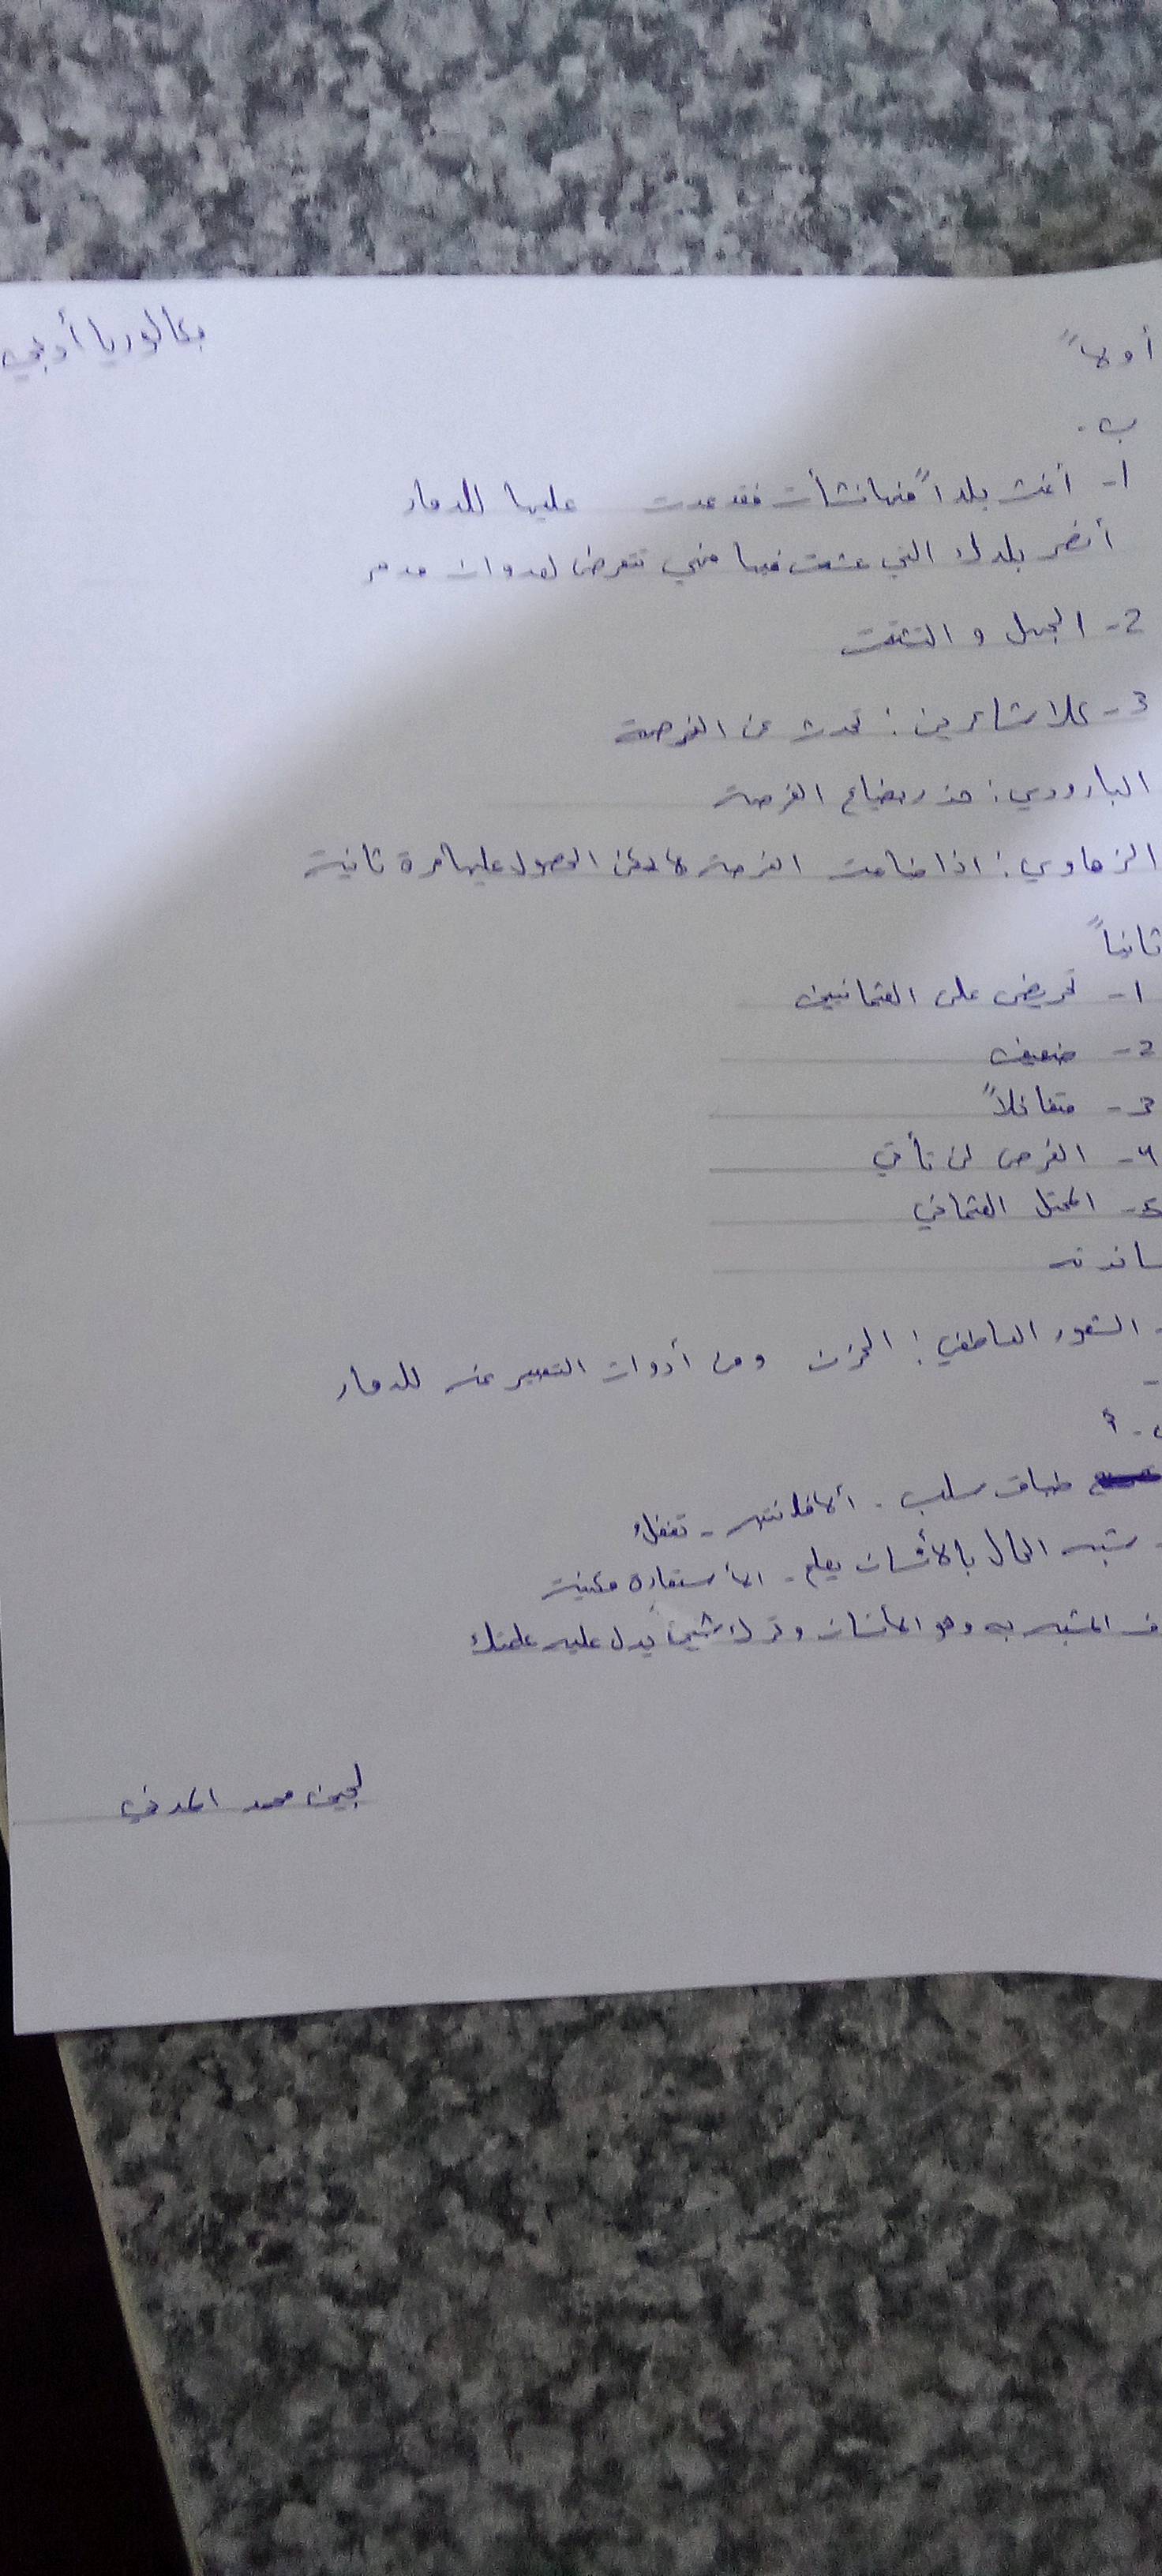 بكالوريا أدبي
أولاً
ب.
1- أغث بلداً منها نشأت فقد عدت عليها للدمار
أنصر بلدك التي عشت فيها فهي تتعرض لعدوان مدمر
2- الجهل و التشتت
3- كلا شاعرين: تحدث عن الفرصة
البارودي: حذر بضياع الفرصة
الزهاوي: اذا ضاعت الفرصة لا يمكن الحصول عليها مرة ثانية
ثانياً
1- تحريض على العثمانيين
2- ضعيف
3- متفائلاً
4- الفرص لن تأتي
5- المحتل العثماني
ساندته
- الشعور العاطفي: الحزن ومن أدوات التعبير عنه للدمار
طباق سلب. ألا فانتبه - تغفل
شبه الحال بالأنسان يعلم. الأستعارة مكنية
ف المشبه به وهو الأنسان وترك شيئ يدل عليه علمتك
لجين محمد المدني